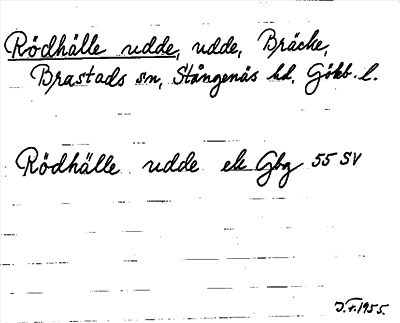 Rödhälle udde, udde, Bräcke,
Brastads sn, Stångenäs hd, Götb. l.
Rödhälle udde ek Gbg 55 SV
J.F. 1955.